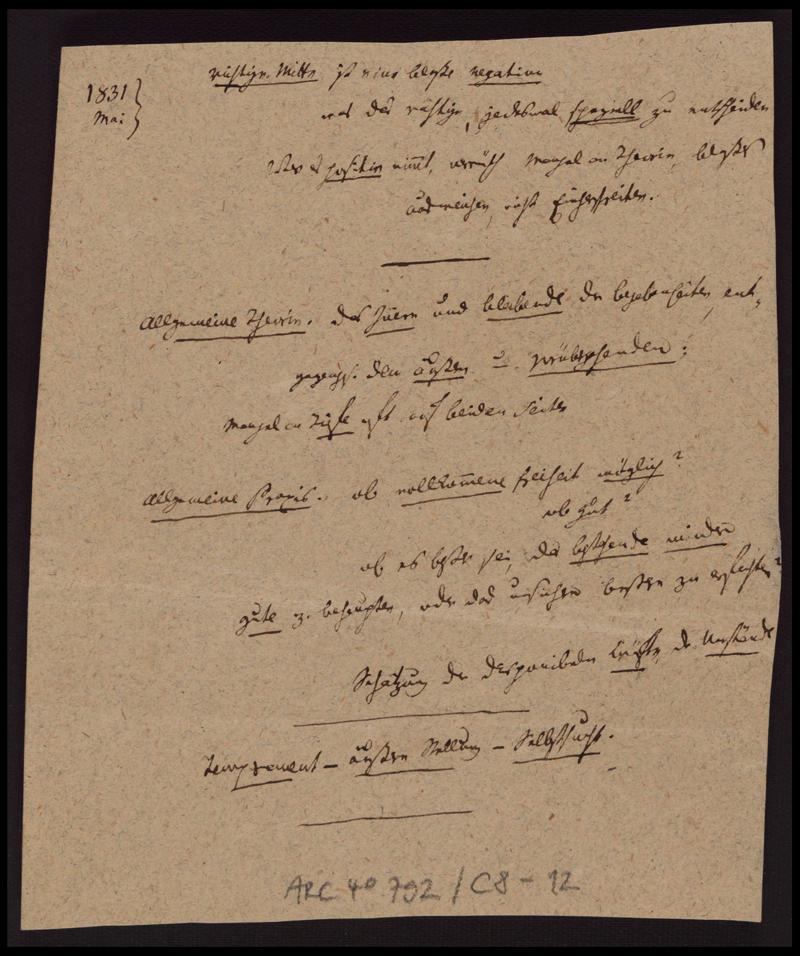 1831
Mai
richtige Mitte ist eine bloße negative
was das richtige, jedesmal speziell zu entscheiden
Wer es positiv nimmt, verräth Mangel an Theorie, bloßes
ausweichen, nicht Einherschreiten.
Allgemeine Theorie. das Innere und bleibende der begebenheiten, ent-
gegengs. den äußern u. vorübergehenden;
Mangel an Tiefe oft auf beiden Seiten
Allgemeine Praxis. ob vollkommene freiheit möglich?
ob gut?
ob es besser sei, das bestehende minder
gute z. behaupten, oder das unsichere bessere zu erfechten?
Schätzung der disponibeln Kräfte, der Umstände
Temperament – äußere Stellung – Selbstsucht.
ARC 4° 792 / C8 - 12